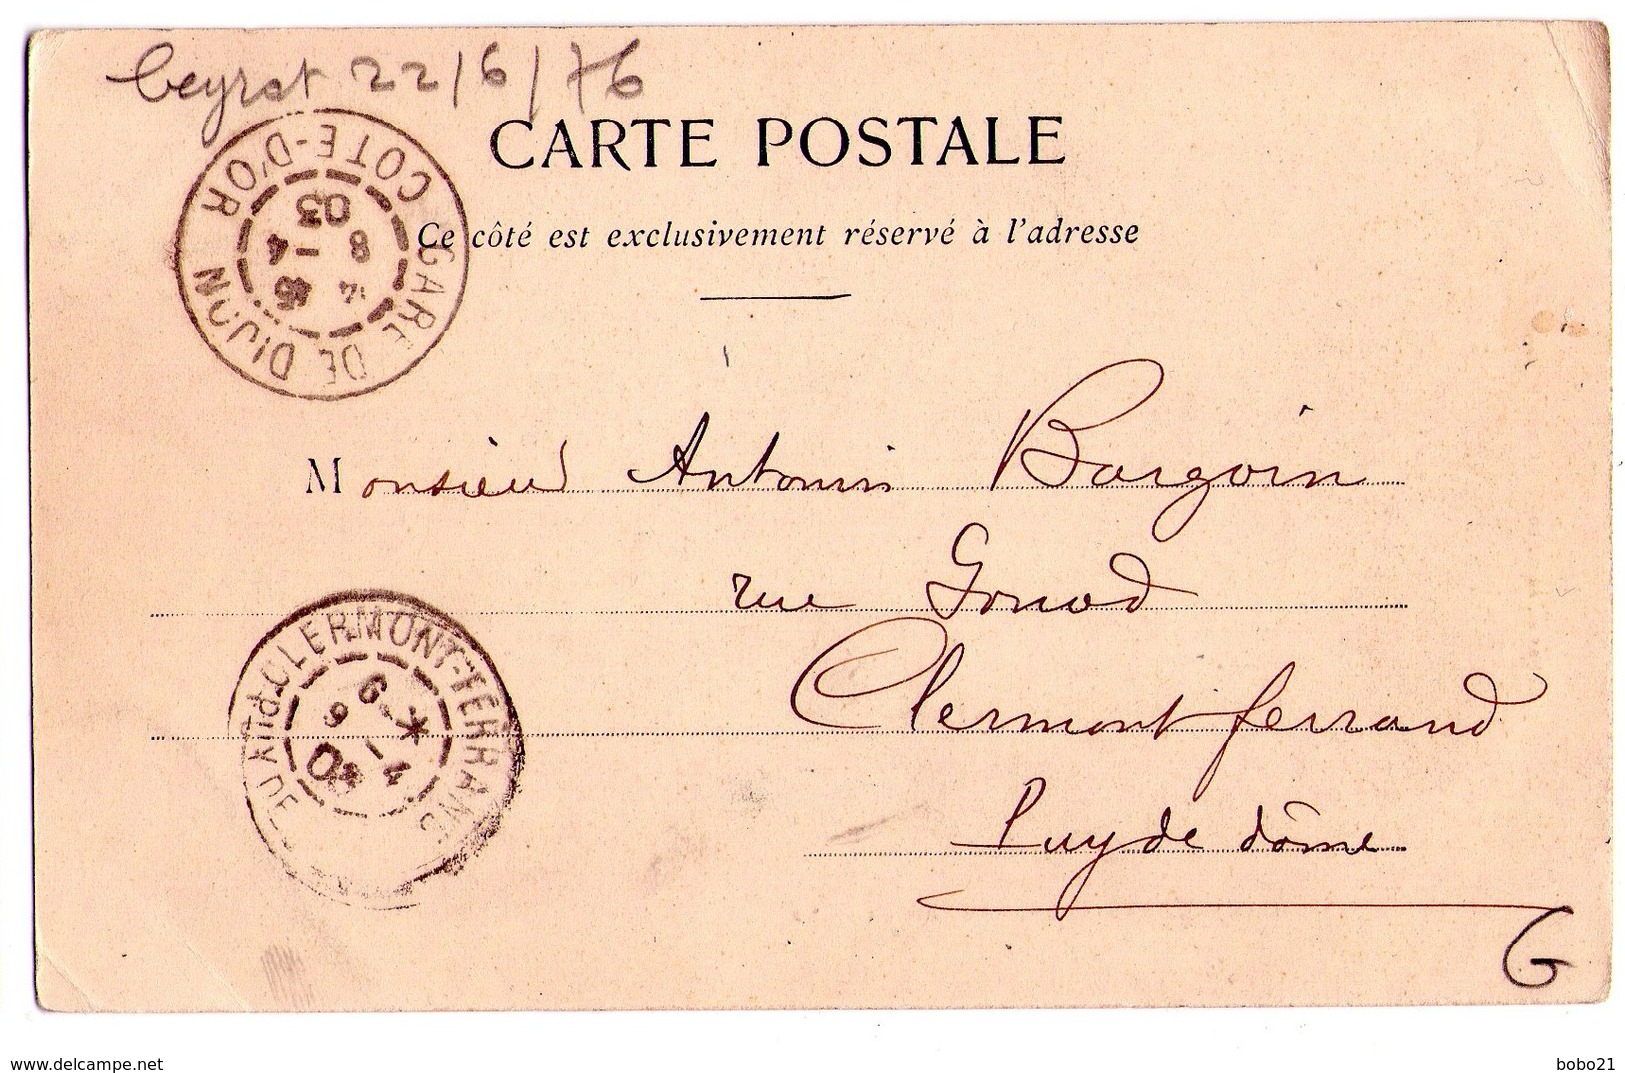 Ceyrat 22/6/76
CARTE POSTALE
Ce côté est exclusivement réservé à l'adresse
GARE DE DIJON COTE-D'OR
8 -4
03
Monsieur Antonin Bargoin
rue Gonod
Clermont ferrand
Puy de dôme
CLERMONT-FERRAND
PUY-DE-
6 *
9 -4
G
www.delcampe.net
bobo21